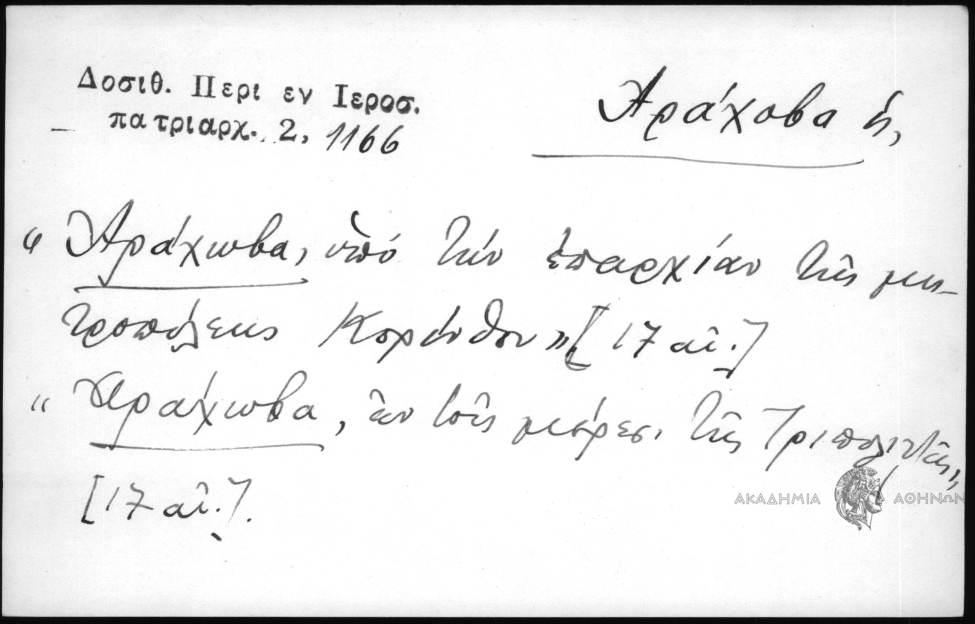 Δοσιθ. Περι εν Ιεροσ.
πατριαρχ. 2, 1166
Ἀράχοβα ἡ,
«Ἀράχωβα, ὑπό τήν ἐπαρχίαν τῆς μη-
τροπόλεως Κορίνθου» [17 αἰ.]
“Ἀράχωβα, ἐν τοῖς μέρεσι τῆς Τριπολιτσᾶς„
[17 αἰ.].
ΑΚΑΔΗΜΙΑ ΑΘΗΝΩΝ